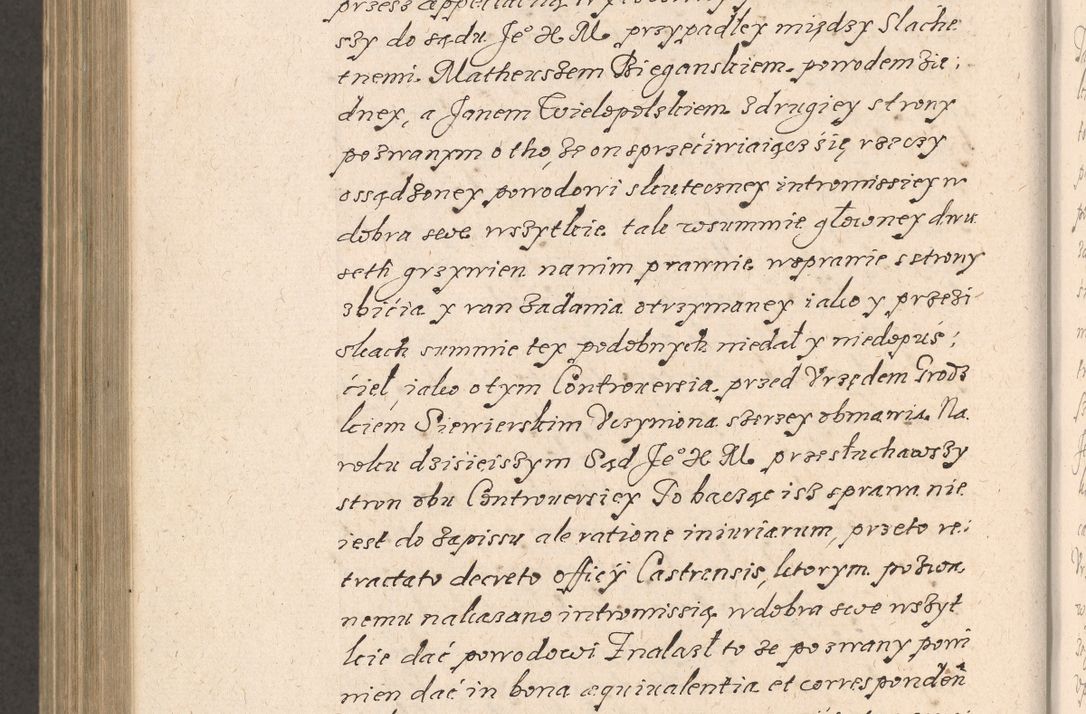 szy do sądu Je° X M przypadłey między Slache
tnemi Matheuszem Bięganskiem powodem ie:
dnex, a Janem Wielopolskiem z drugiey strony
pozwanym o tho, że on sprzećiwiaiącz się rzeczy
ossądzoney powodowi skuteczney intromissiey w
dobra swe wszytkie tak wsummie głowney dwu
seth grzywien nanim prawnie wsprawie s strony
zbićia y ran zadania otrzymaney iako y przezi
skach summie tey podobnych niedał y niedopuś:
ćieł, iako o tym Controversia przed Vrzędem Grodz
kiem Siewierskim Vczyniona szerzey obmawia. Na
roku dzisieiszym Sąd Je° X M. przesłuchawszy
stron obu Controversiey To bacząc isz sprawa nie
iest do zapissu ale ratione iniuriarum, przeto re:
tractato decreto officy Castrensis, ktorym pozwa
nemu nakazano intromissią wdobra swe wszyt
kie dać powodowi Znalazł to że pozwany powi
nien dać in bona æquiualentia et correspondeñ